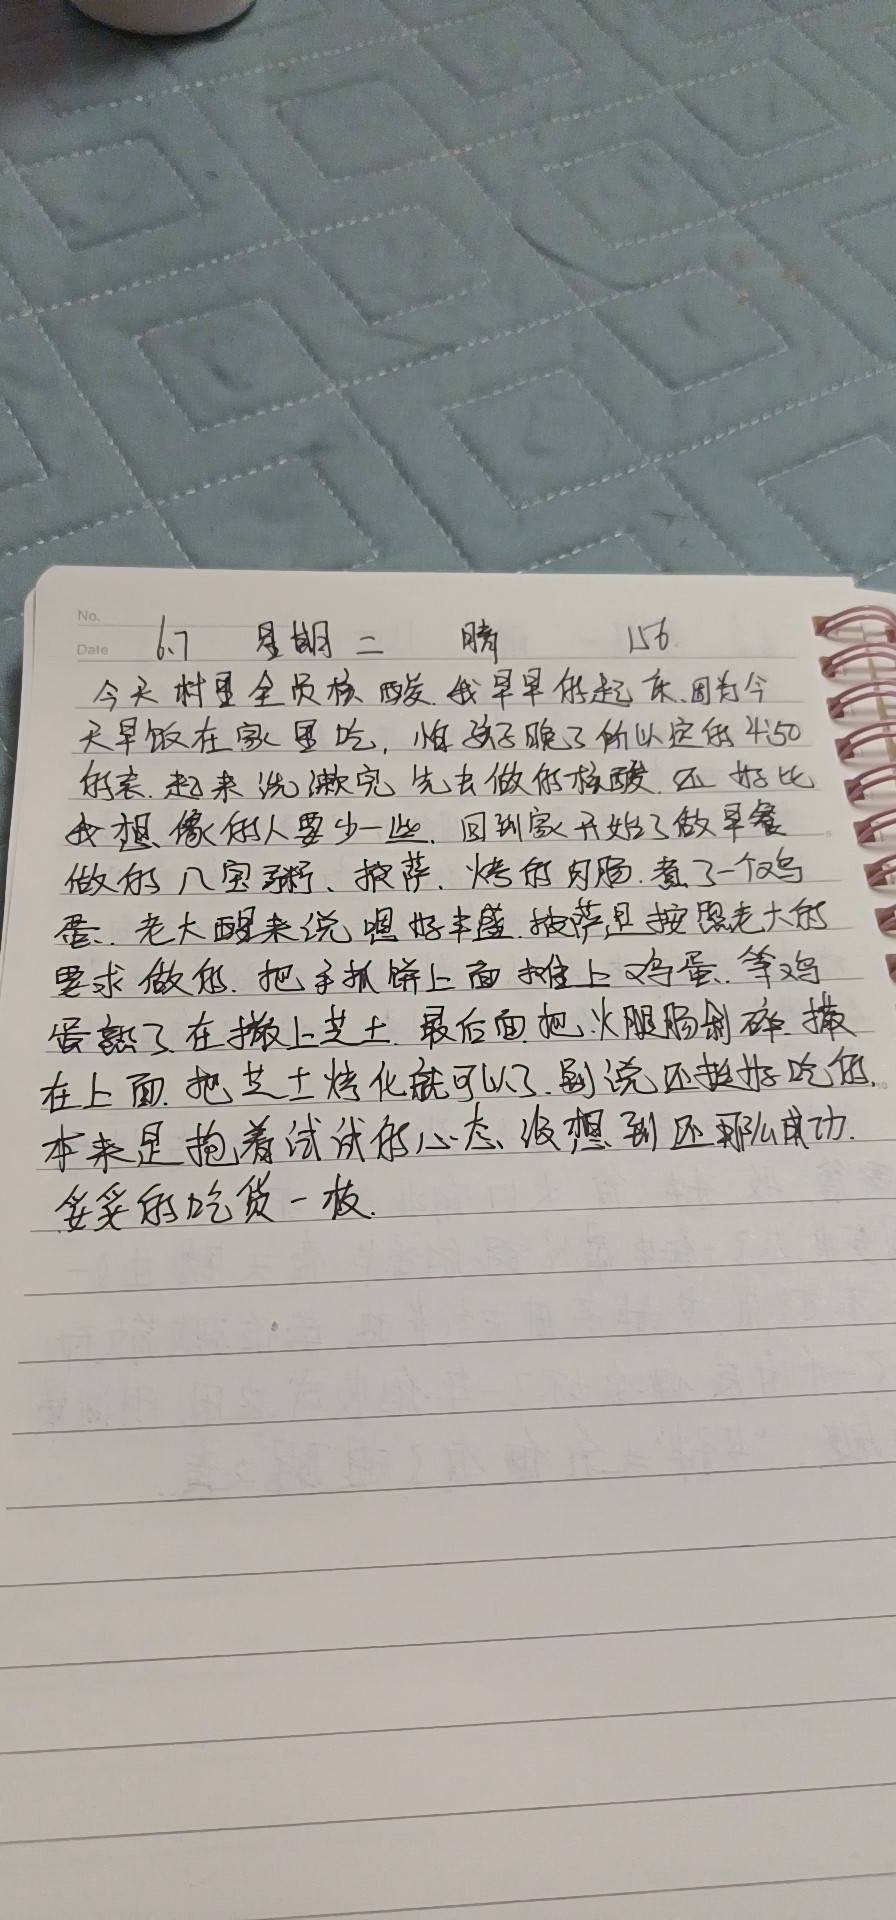 No.
Date 6.7 星期二 晴 156
今天村里全员核酸.我早早的起床.因为今
天早饭在家里吃,怕孩子晚了所以定的4:50
的表.起来洗漱完先去做的核酸.还好比
我想像的人要少一些.回到家开始了做早餐
做的八宝粥、披萨.烤的肉肠.煮了一个鸡
蛋.老大醒来说嗯好丰盛.披萨是按照老大的
要求做的.把手抓饼上面摊上鸡蛋.等鸡
蛋熟了在撒上芝士.最后面把火腿肠剁碎.撒
在上面.把芝士烤化就可以了.别说还挺好吃的.
本来是抱着试试的心态、没想到还那么成功.
妥妥的吃货一枚.